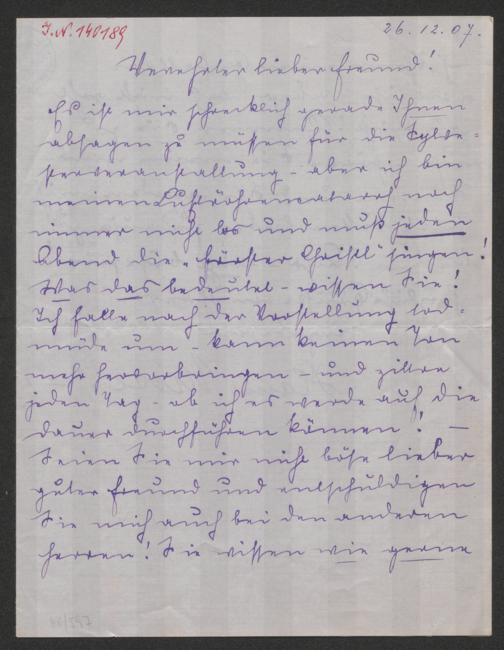 I.N. 140189
26.12.07.
Verehrter lieber Freund!
Es ist mir schrecklich gerade Ihnen
absagen zu müssen für die Sylve-
sterveranstaltung - aber ich bin
meinen Luftröhrencatarrh noch
immer nicht los und muß jeden
Abend die „Förster Christl“ singen!
Was das bedeutet - wissen Sie!
Ich falle nach der Vorstellung tod-
müde um - kann keinen Ton
mehr hervorbringen - und zittre
jeden Tag - ob ich es werde auf die
Dauer durchführen können! -
Seien Sie mir nicht böse lieber
guter Freund und entschuldigen
Sie mich auch bei den anderen
Herren! Sie wissen wie gerne